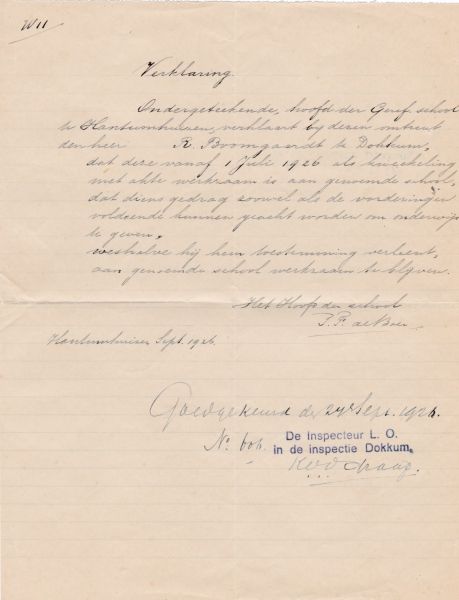 W11
Verklaring.
Ondergeteekende, hoofd der Geref. school
te Hantumhuizen, verklaart bij dezen omtrent
den heer R. Boomgaardt te Dokkum,
dat deze vanaf 1 Juli 1926 als kweekeling
met akte werkzaam is aan genoemde school,
dat diens gedrag zoowel als de vorderingen
voldoende kunnen geacht worden om onderwijs
te geven,
weshalve hij hem toestemming verleent,
aan genoemde school werkzaam te blijven.
Het Hoofd der school
P. de Boer
Hantumhuizen Sept. 1926.
Goedgekeurd de 24 Sept. 1926.
No. 606.
De Inspecteur L. O.
in de inspectie Dokkum,